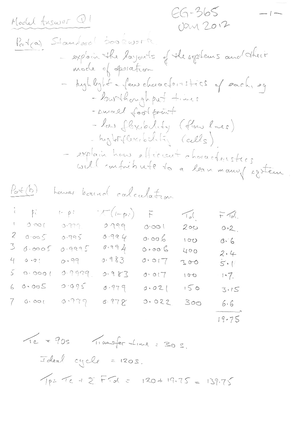 Model Answer Q1
EG-365
Jan 2012
-1-
Part(a) Standard bookwork
- explain the layouts of the systems and their
mode of operation
- highlight a few characteristics of each, eg
- low throughput times
- small foot print
- less flexibility (flow lines)
- high flexibility (cells)
- explain how different characteristics
will contribute to a lean manuf system
Part(b) Lower bound calculation
i Pi 1-pi π(1-pi) F Td F Td
1 0.001 0.999 0.999 0.001 200 0.2
2 0.005 0.995 0.994 0.006 100 0.6
3 0.0005 0.9995 0.994 0.006 400 2.4
4 0.01 0.99 0.983 0.017 300 5.1
5 0.0001 0.9999 0.983 0.017 100 1.7
6 0.005 0.995 0.979 0.021 150 3.15
7 0.001 0.999 0.978 0.022 300 6.6
19.75
Tc = 90s Transfer time = 30 s.
Ideal cycle = 120s.
Tp = Tc + Σ F Td = 120 + 19.75 = 139.75